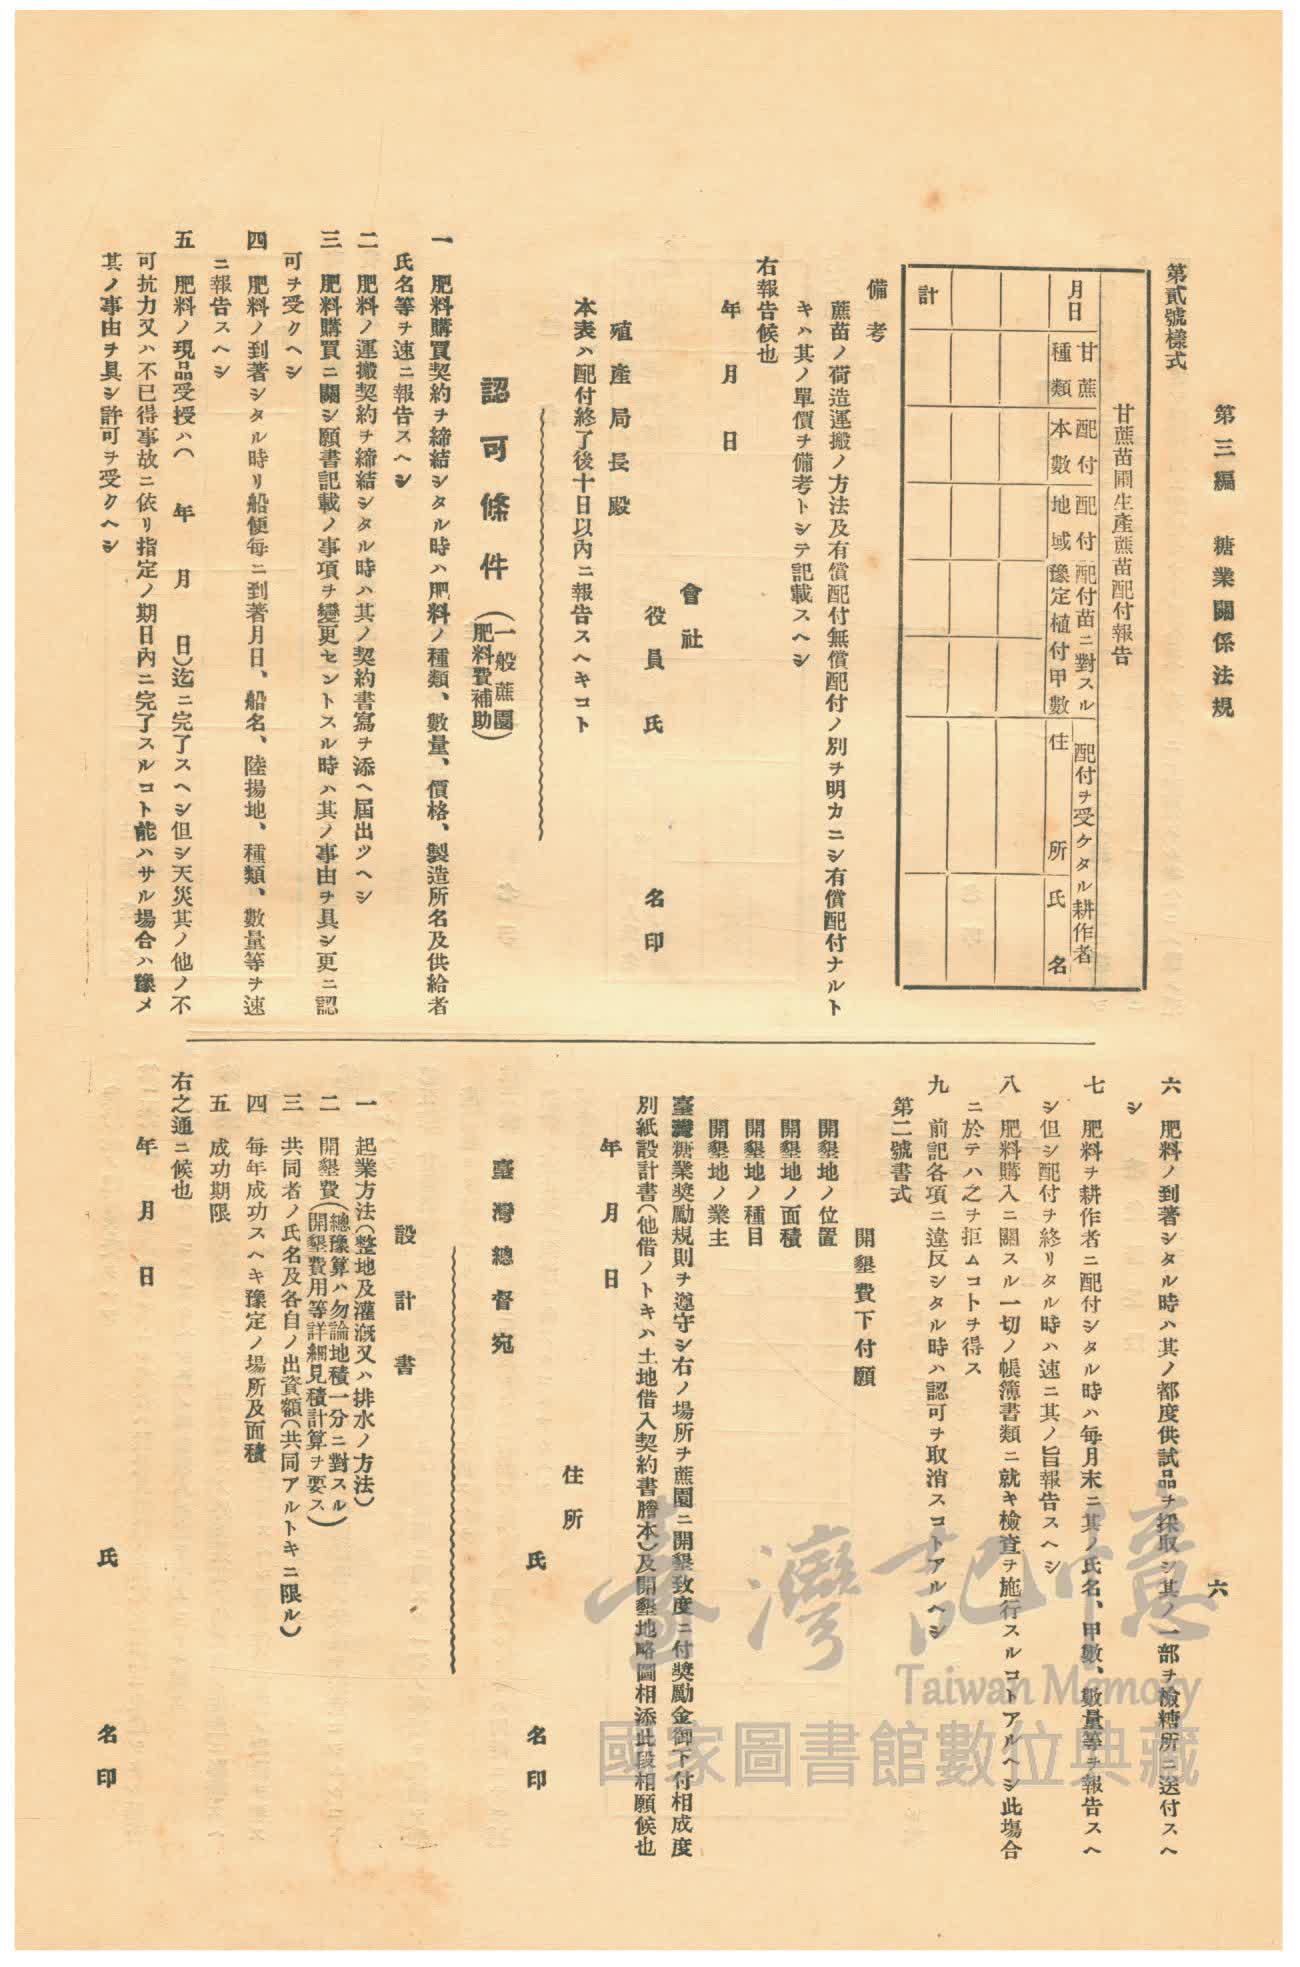 第三編　糖業關係法規
六
第貳號樣式
甘蔗苗圃生產蔗苗配付報告
月日
甘蔗種類
配付本數
配付地域
配付苗ニ對スル豫定植付甲數
配付ヲ受ケタル耕作者
住所
氏名
計
備考
蔗苗ノ荷造運搬ノ方法及有償配付無償配付ノ別ヲ明カニシ有償配付ナルト
キハ其ノ單價ヲ備考トシテ記載スヘシ
右報告候也
年　月　日
會社
役員　氏　名印
殖產局長殿
本表ハ配付終了後十日以內ニ報告スヘキコト
認可條件（一般蔗園肥料費補助）
一　肥料購買契約ヲ締結シタル時ハ肥料ノ種類、數量、價格、製造所名及供給者
氏名等ヲ速ニ報告スヘシ
二　肥料ノ運搬契約ヲ締結シタル時ハ其ノ契約書寫ヲ添ヘ屆出ツヘシ
三　肥料購買ニ關シ願書記載ノ事項ヲ變更セントスル時ハ其ノ事由ヲ具シ更ニ認
可ヲ受クヘシ
四　肥料ノ到著シタル時リ船便每ニ到著月日、船名、陸揚地、種類、數量等ヲ速
ニ報告スヘシ
五　肥料ノ現品受授ハ（　年　月　日）迄ニ完了スヘシ但シ天災其ノ他ノ不
可抗力又ハ不已得事故ニ依リ指定ノ期日內ニ完了スルコト能ハサル場合ハ豫メ
其ノ事由ヲ具シ許可ヲ受クヘシ
六　肥料ノ到著シタル時ハ其ノ都度供試品ヲ採取シ其ノ一部ヲ檢糖所ニ送付スヘ
シ
七　肥料ヲ耕作者ニ配付シタル時ハ每月末ニ其ノ氏名、甲數、數量等ヲ報告スヘ
シ但シ配付ヲ終リタル時ハ速ニ其ノ旨報告スヘシ
八　肥料購入ニ關スル一切ノ帳簿書類ニ就キ檢查ヲ施行スルコトアルヘシ此場合
ニ於テハ之ヲ拒ムコトヲ得ス
九　前記各項ニ違反シタル時ハ認可ヲ取消スコトアルヘシ
第二號書式
開墾費下付願
開墾地ノ位置
開墾地ノ面積
開墾地ノ種目
開墾地ノ業主
臺灣糖業奬勵規則ヲ遵守シ右ノ場所ヲ蔗園ニ開墾致度ニ付奬勵金御下付相成度
別紙設計書（他借ノトキハ土地借入契約書謄本）及開墾地略圖相添此段相願候也
年　月　日
住所
氏　名印
臺灣總督宛
設計書
一　起業方法（整地及灌漑又ハ排水ノ方法）
二　開墾費（總豫算ハ勿論地積一分ニ對スル開墾費用等詳細見積計算ヲ要ス）
三　共同者ノ氏名及各自ノ出資額（共同アルトキニ限ル）
四　每年成功スヘキ豫定ノ場所及面積
五　成功期限
右之通ニ候也
年　月　日
氏　名印
臺灣記憶
Taiwan Memory
國家圖書館數位典藏